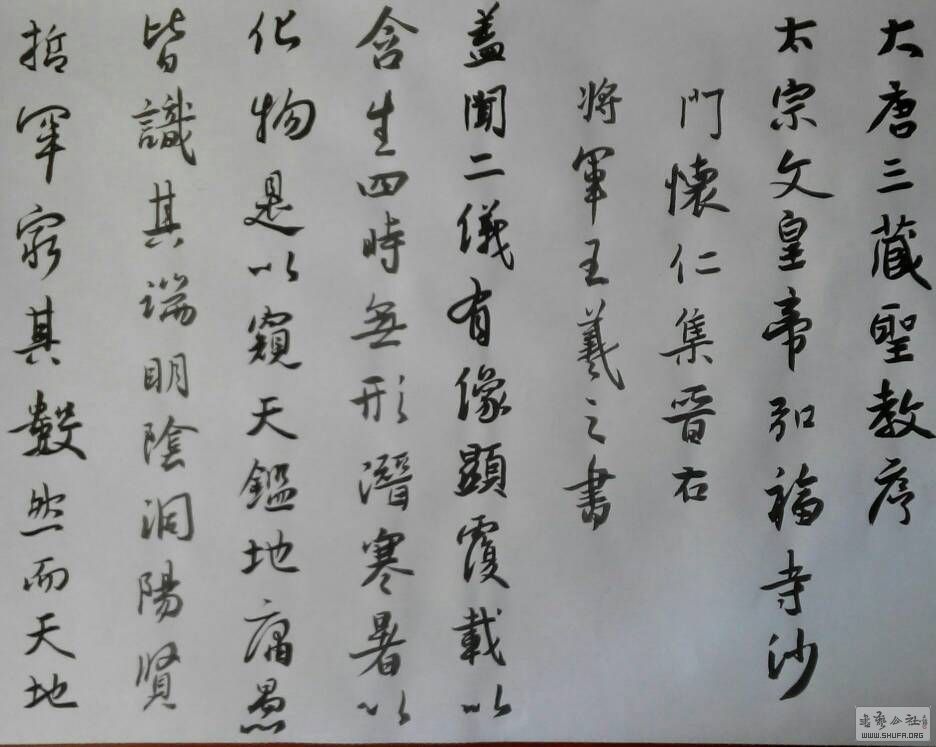 大唐三藏聖教序
太宗文皇帝弘福寺沙
門懷仁集晉右
將軍王羲之書
蓋聞二儀有像顯覆載以
含生四時無形潛寒暑以
化物是以窺天鑑地庸愚
皆識其端明陰洞陽賢
哲罕窮其數然而天地
WWW.SHUFA.ORG